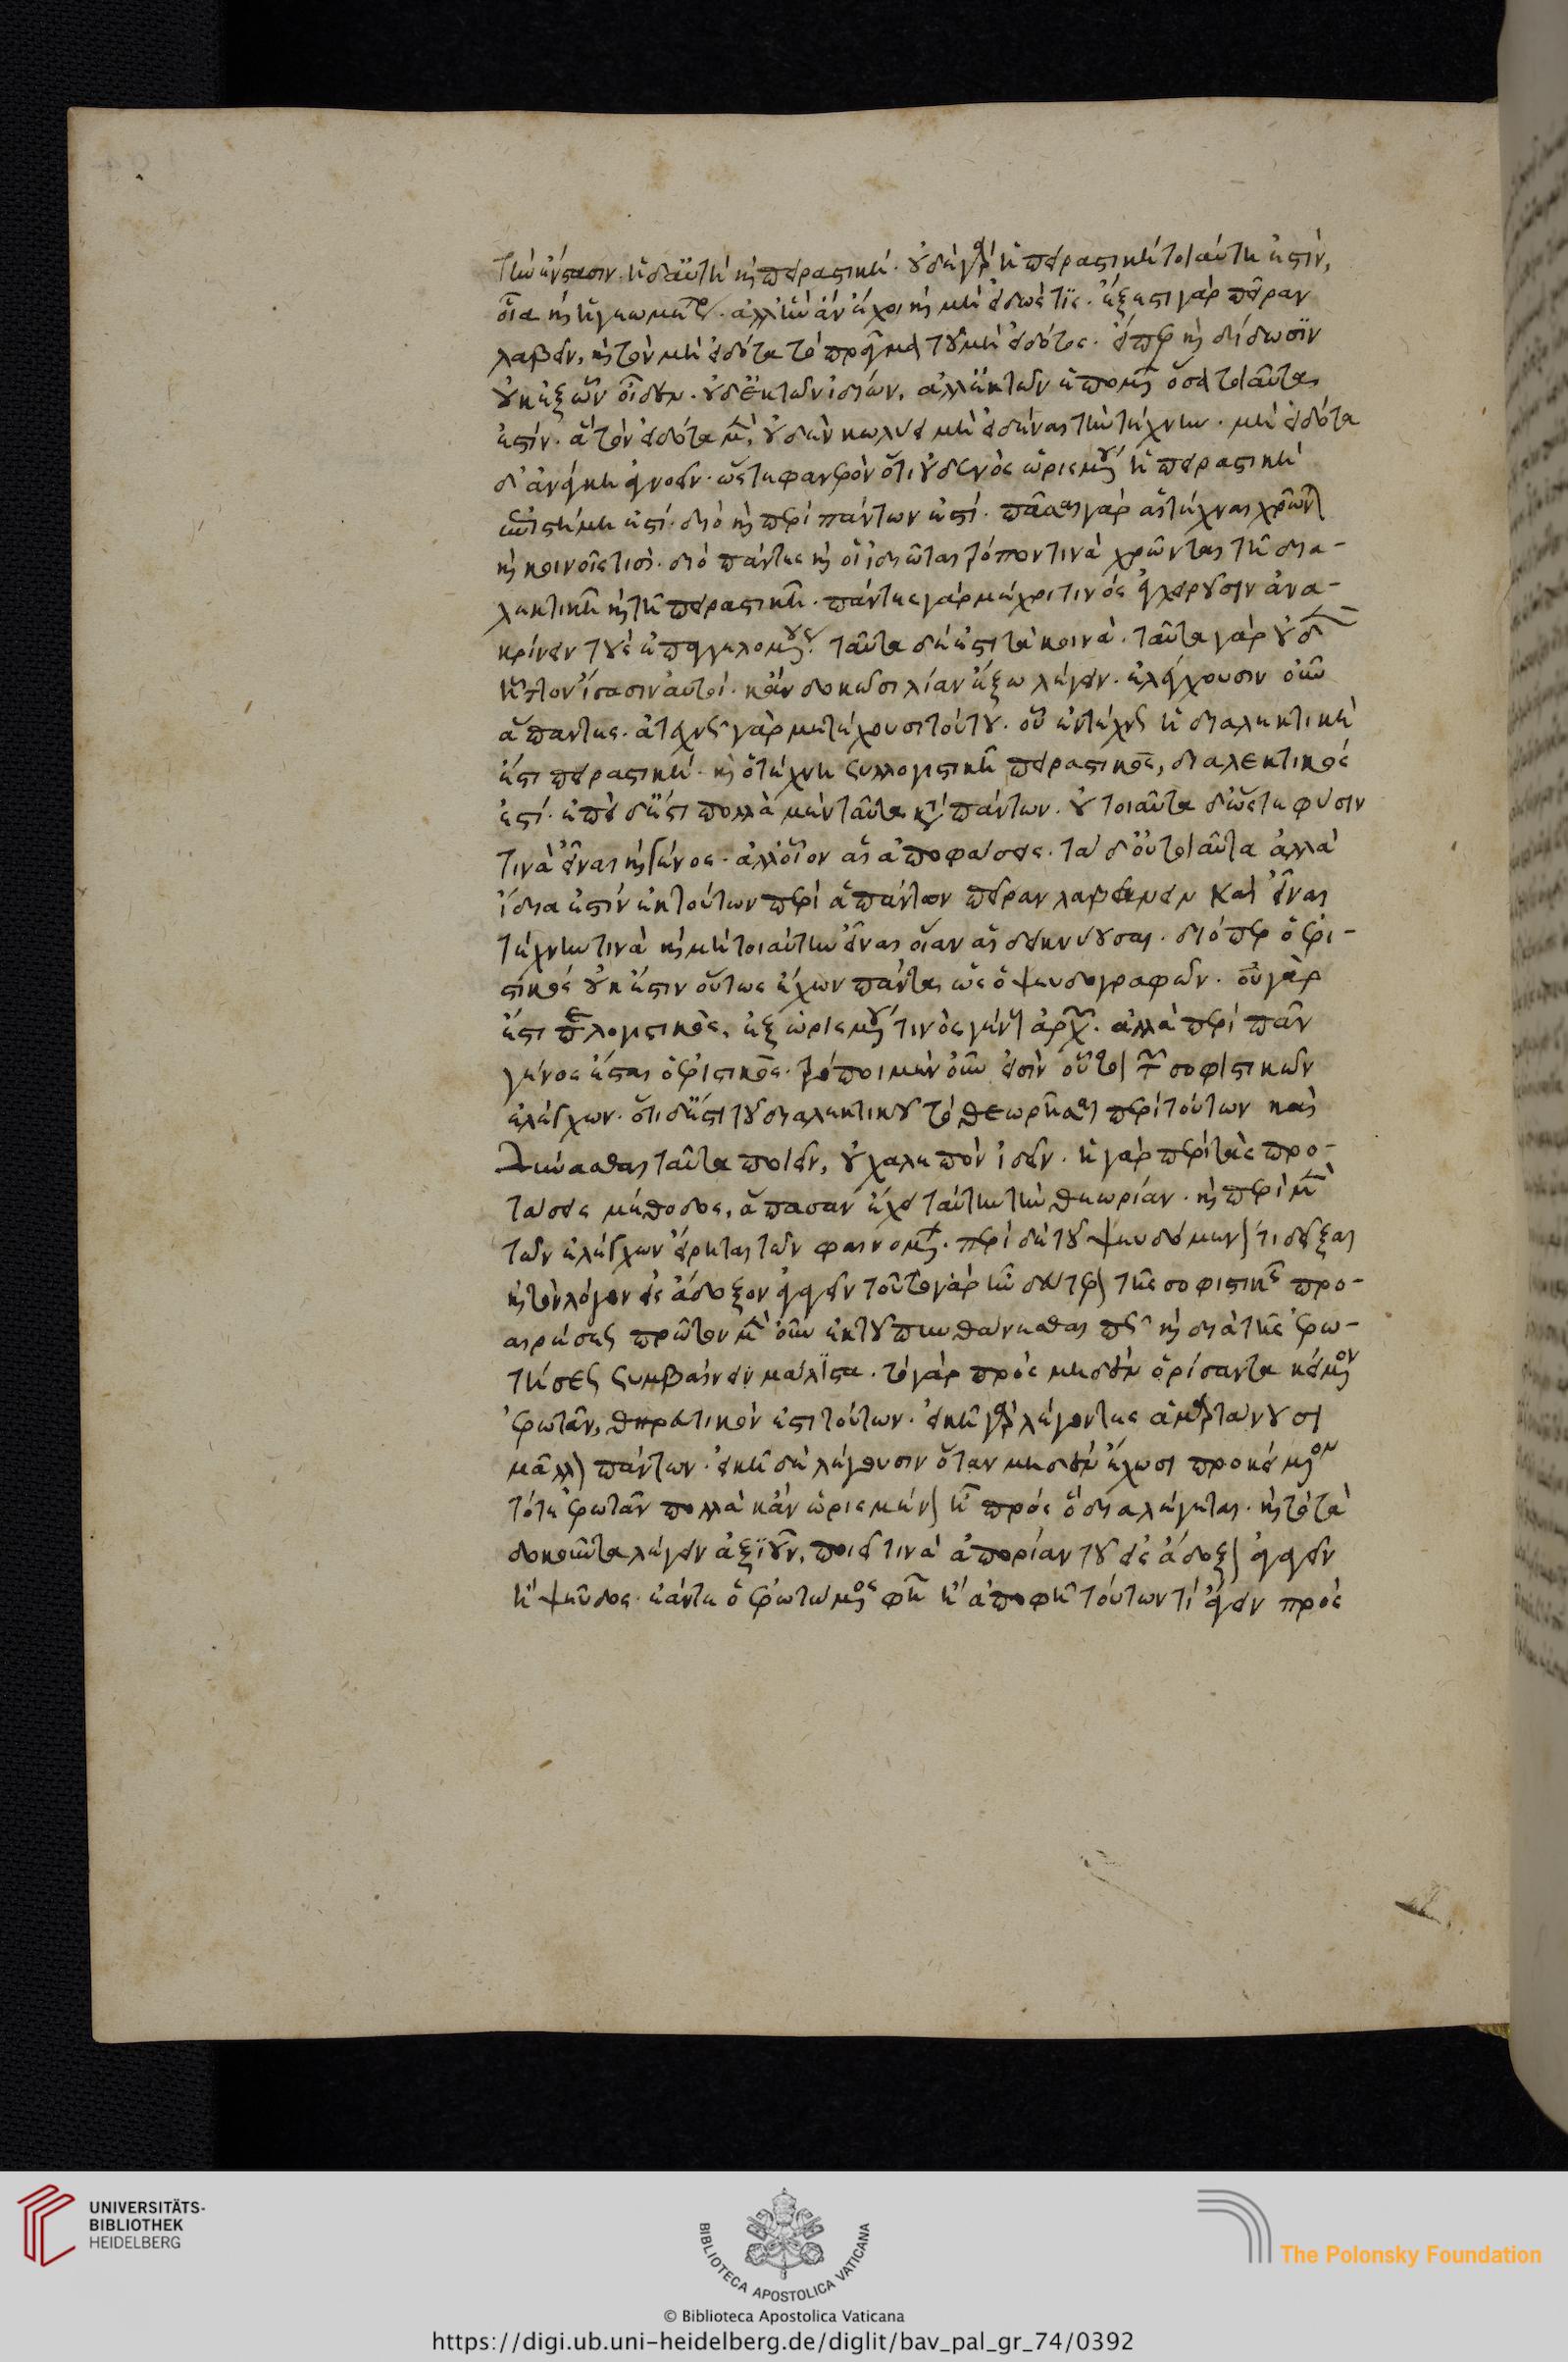 τὴν ἔνστασιν. ἡ δ' αὐτὴ καὶ πειραστική. οὐδὲ γὰρ ἡ πειραστικὴ τοιαύτη ἐστίν,
οἵα καὶ ἡ γεωμετρία. ἀλλ' ἣν ἂν ἔχοι καὶ μὴ εἰδώς τις. ἔξεστι γὰρ πεῖραν
λαβεῖν, καὶ τὸν μὴ εἰδότα τὸ πρᾶγμα τοῦ μὴ εἰδότος. εἴπερ καὶ δίδωσιν
οὐκ ἐξ ὧν οἶδεν. οὐδ' ἐκ τῶν ἰδίων, ἀλλ' ἐκ τῶν ἑπομένων ὅσα τοιαῦτα
ἐστίν. ἃ τὸν εἰδότα μὲν, οὐδὲν κωλύει μὴ εἰδέναι τὴν τέχνην. μὴ εἰδότα
δ' ἀνάγκη ἀγνοεῖν. ὥστε φανερὸν ὅτι οὐδενὸς ὡρισμένου ἡ πειραστικὴ
ἐπιστήμη ἐστί. διὸ καὶ περὶ πάντων ἐστί. πᾶσαι γὰρ αἱ τέχναι χρῶνται
καὶ κοινοῖς τισί. διὸ πάντες καὶ οἱ ἰδιῶται τρόπον τινὰ χρῶνται τῇ δια-
λεκτικῇ καὶ τῇ πειραστικῇ. πάντες γὰρ μέχρι τινὸς ἐγχειροῦσιν ἀνα-
κρίνειν τοὺς ἐπαγγελομένους. ταῦτα δέ ἐστι τὰ κοινά. ταῦτα γὰρ οὐδὲν
ἧττον ἴσασιν αὐτοί. κἂν δοκῶσι λίαν ἔξω λέγειν. ἐλέγχουσιν οὖν
ἅπαντες. ἀτέχνως γὰρ μετέχουσι τούτου. οὗ ἐντέχνως ἡ διαλεκτική
ἐστι πειραστική. καὶ ὁ τέχνη συλλογιστικῇ πειραστικὸς, διαλεκτικός
ἐστί. ἐπεὶ δ' ἔστι πολλὰ μὲν ταῦτα κατὰ πάντων. οὐ τοιαῦτα δ' ὥστε φύσιν
τινὰ εἶναι καὶ γένος. ἀλλ' οἷον αἱ ἀποφάσεις. τὰ δ' οὐ τοιαῦτα ἀλλὰ
ἴδια ἐστίν ἐκ τούτων περὶ ἁπάντων πεῖραν λαμβάνειν καὶ εἶναι
τέχνην τινὰ καὶ μὴ τοιαύτην εἶναι οἷαν αἱ δεικνύουσαι. διόπερ ὁ ἐρι-
στικὸς οὐκ ἔστιν οὕτως ἔχων πάντα ὡς ὁ ψευδογραφῶν. οὐ γάρ
ἐστι παραλογιστικὸς, ἐξ ὡρισμένου τινὸς γένους ἀρχῶν. ἀλλὰ περὶ πᾶν
γένος ἔσται ὁ ἐριστικός. τρόποι μὲν οὖν εἰσὶν οὗτοι τῶν σοφιστικῶν
ἐλέγχων. ὅτι δ' ἔστι τοῦ διαλεκτικοῦ τὸ θεωρῆσαι περὶ τούτων καὶ
δύνασθαι ταῦτα ποιεῖν, οὐ χαλεπὸν ἰδεῖν. ἡ γὰρ περὶ τὰς προ-
τάσεις μέθοδος, ἅπασαν ἔχει ταύτην τὴν θεωρίαν. καὶ περὶ μὲν
τῶν ἐλέγχων εἴρηται τῶν φαινομένων. περὶ δὲ τοῦ ψευδόμενόν τι δεῖξαι
καὶ τὸν λόγον εἰς ἄδοξον ἀγαγεῖν τοῦτο γὰρ ἦν δεύτερον τῆς σοφιστικῆς προ-
αιρέσεως πρῶτον μὲν οὖν ἐκ τοῦ πυνθάνεσθαι πῶς καὶ διὰ τῆς ἐρω-
τήσεως συμβαίνειν μάλιστα. τὸ γὰρ πρὸς μηδὲν ὁρίσαντα κείμενον
ἐρωτᾶν, θηρευτικόν ἐστι τούτων. εἰκῇ γὰρ λέγοντες ἁμαρτάνουσι
μᾶλλον πάντων. εἰκῇ δὲ λέγουσιν ὅταν μηδὲν ἔχωσι προκείμενον
τότε ἐρωτᾶν πολλὰ κἂν ὡρισμένον ᾖ πρὸς ὃ διαλέγεται. καὶ τὸ τὰ
δοκοῦντα λέγειν ἀξιοῦν, ποιεῖ τινὰ ἀπορίαν τοῦ εἰς ἄδοξον ἀγαγεῖν
ἢ ψεῦδος. ἐάν τε ὁ ἐρωτώμενος φῇ ἢ ἀποφῇ τούτων τί ἄγειν πρὸς
UNIVERSITÄTS-
BIBLIOTHEK
HEIDELBERG
BIBLIOTECA APOSTOLICA VATICANA
The Polonsky Foundation
© Biblioteca Apostolica Vaticana
https://digi.ub.uni-heidelberg.de/diglit/bav_pal_gr_74/0392